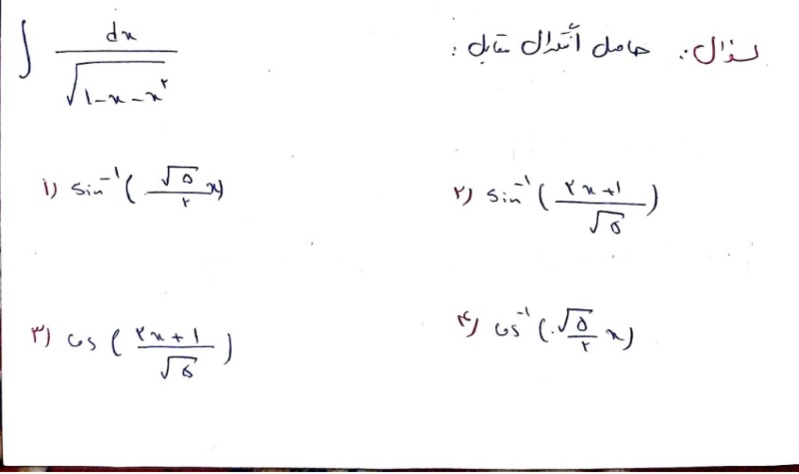 سؤال: حاصل أنتگرال مقابل:
∫ dx / √(1-x-x²)
۱) sin⁻¹(√۵/۲ x)
۲) sin⁻¹(۲x+1/√۵)
۳) cos(۲x+1/√۵)
۴) cos⁻¹(√۵/۲ x)